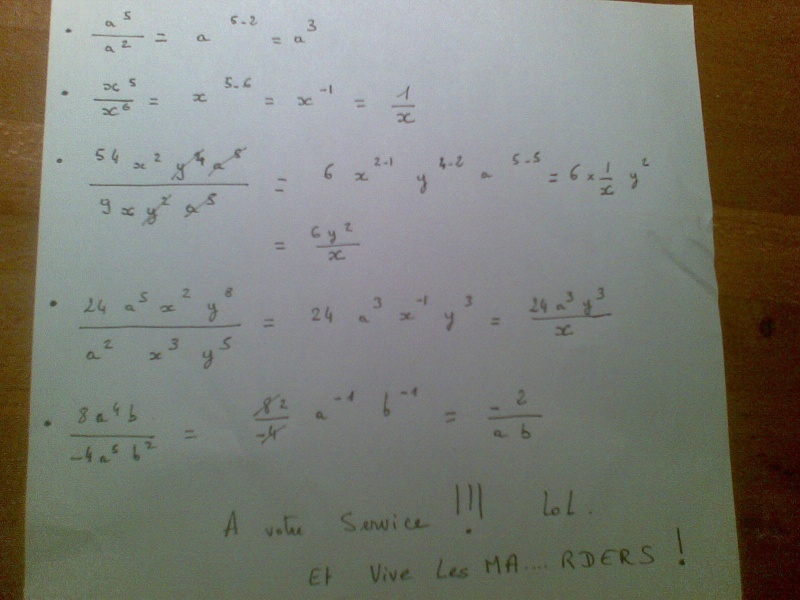 • a⁵/a² = a⁵⁻² = a³
• x⁵/x⁶ = x⁵⁻⁶ = x⁻¹ = 1/x
• 54 x² y⁴ a⁵ / 9 x y² a⁵ = 6 x²⁻¹ y⁴⁻² a⁵⁻⁵ = 6 × 1/x y²
= 6y²/x
• 24 a⁵ x² y⁸ / a² x³ y⁵ = 24 a³ x⁻¹ y³ = 24 a³ y³ / x
• 8a⁴b / -4a⁵b² = 8 2 / -4 a⁻¹ b⁻¹ = - 2 / a b
A votre Service !!! LoL.
Et Vive Les MA.... RDERS !